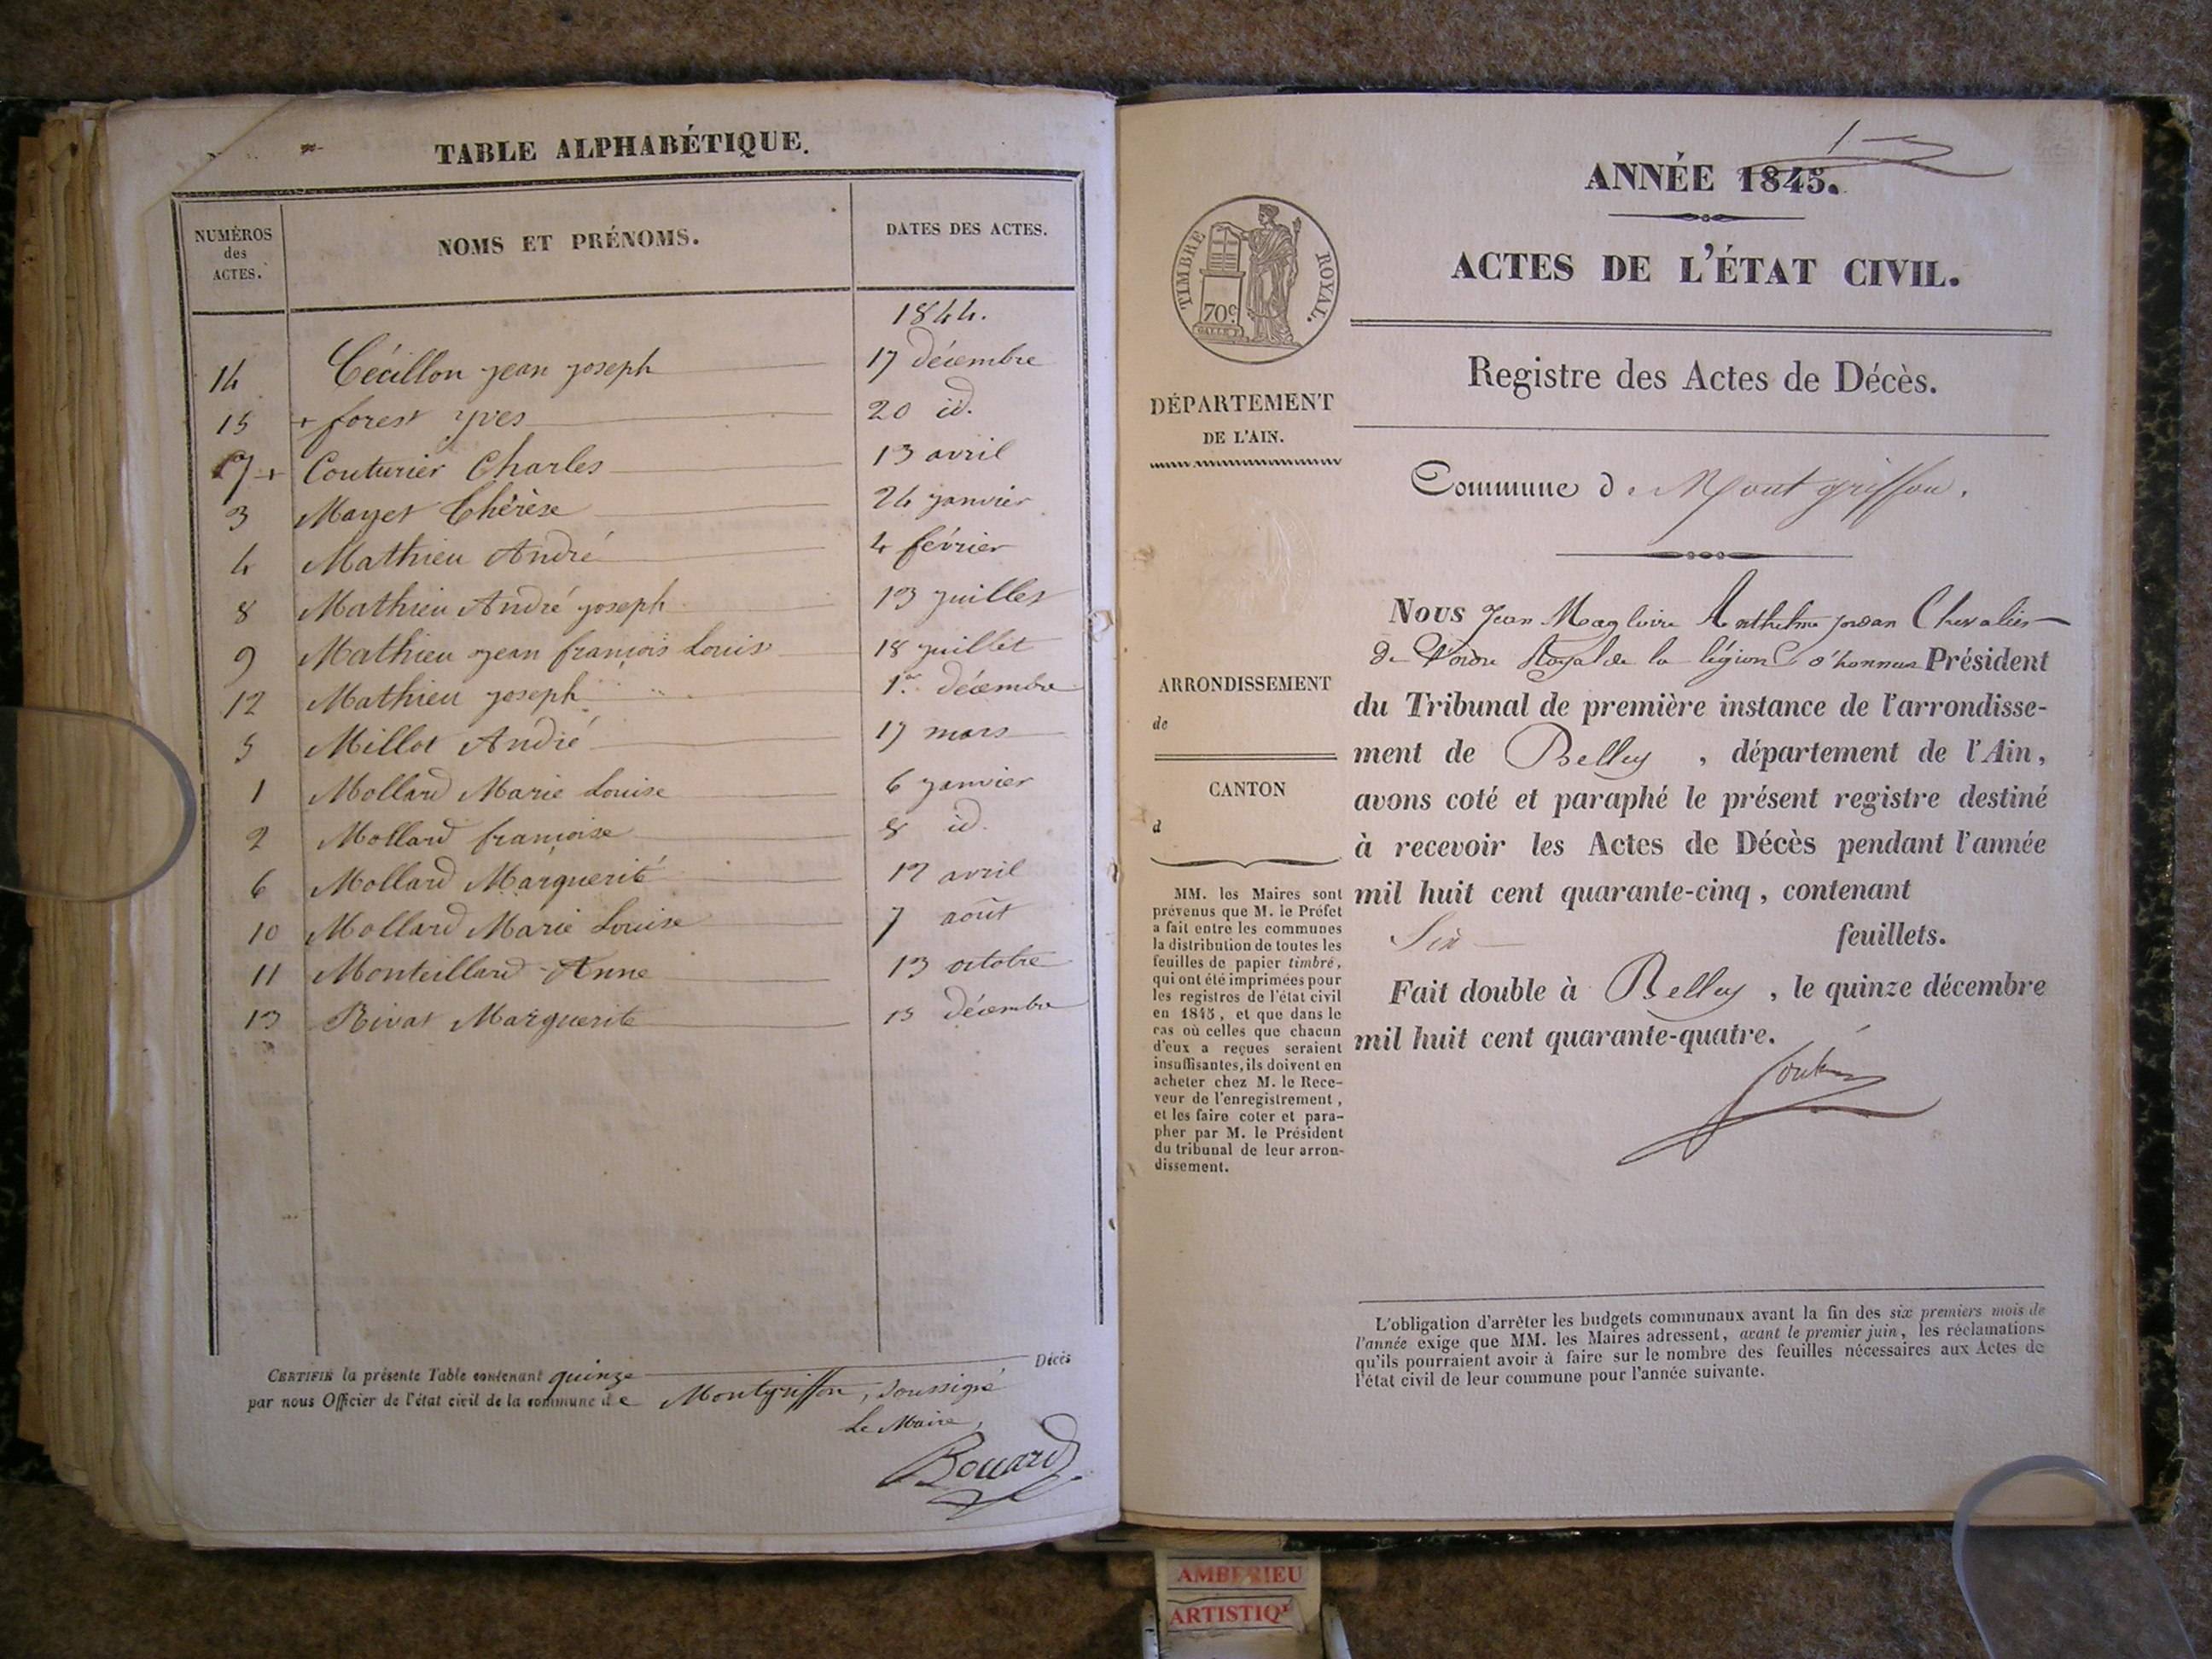 TABLE ALPHABÉTIQUE.
NUMÉROS
des
ACTES.
NOMS ET PRÉNOMS.
DATES DES ACTES.
1844.
14 Cécillon jean joseph 17 décembre
15 + forest yves 20 id.
7 + Couturier Charles 13 avril
3 Mayet Thérèse 24 janvier
4 Mathieu André 4 février
8 Mathieu André joseph 13 juillet
9 Mathieu jean françois Louis 18 juillet
12 Mathieu joseph 1er décembre
5 Millot André 17 mars
1 Mollard Marie Louise 6 janvier
2 Mollard françoise 8 id.
6 Mollard Marguerite 12 avril
10 Mollard Marie Louise 7 août
11 Monteillard Anne 13 octobre
13 Rivat Marguerite 15 décembre
CERTIFIÉ la présente Table contenant quinze Décès
par nous Officier de l'état civil de la commune de Montgriffon, soussigné
Le Maire,
Bouard
1
ANNÉE 1845.
ACTES DE L'ÉTAT CIVIL.
TIMBRE ROYAL.
70c
Registre des Actes de Décès.
DÉPARTEMENT
DE L'AIN.
Commune de Montgriffon.
Nous Jean Magloire Anthelme jordan Chevalier
De l'ordre Royal de la légion d'honneur Président
du Tribunal de première instance de l'arrondisse-
ment de Belley, département de l'Ain,
avons coté et paraphé le présent registre destiné
à recevoir les Actes de Décès pendant l'année
mil huit cent quarante-cinq, contenant
Six feuillets.
Fait double à Belley, le quinze décembre
mil huit cent quarante-quatre.
ARRONDISSEMENT
de
CANTON
d
MM. les Maires sont
prévenus que M. le Préfet
a fait entre les communes
la distribution de toutes les
feuilles de papier timbré,
qui ont été imprimées pour
les registres de l'état civil
en 1845, et que dans le
cas où celles que chacun
d'eux a reçues seraient
insuffisantes, ils doivent en
acheter chez M. le Rece-
veur de l'enregistrement,
et les faire coter et para-
pher par M. le Président
du tribunal de leur arron-
dissement.
L'obligation d'arrêter les budgets communaux avant la fin des six premiers mois de
l'année exige que MM. les Maires adressent, avant le premier juin, les réclamations
qu'ils pourraient avoir à faire sur le nombre des feuilles nécessaires aux Actes de
l'état civil de leur commune pour l'année suivante.
AMBERIEU
ARTISTIQ